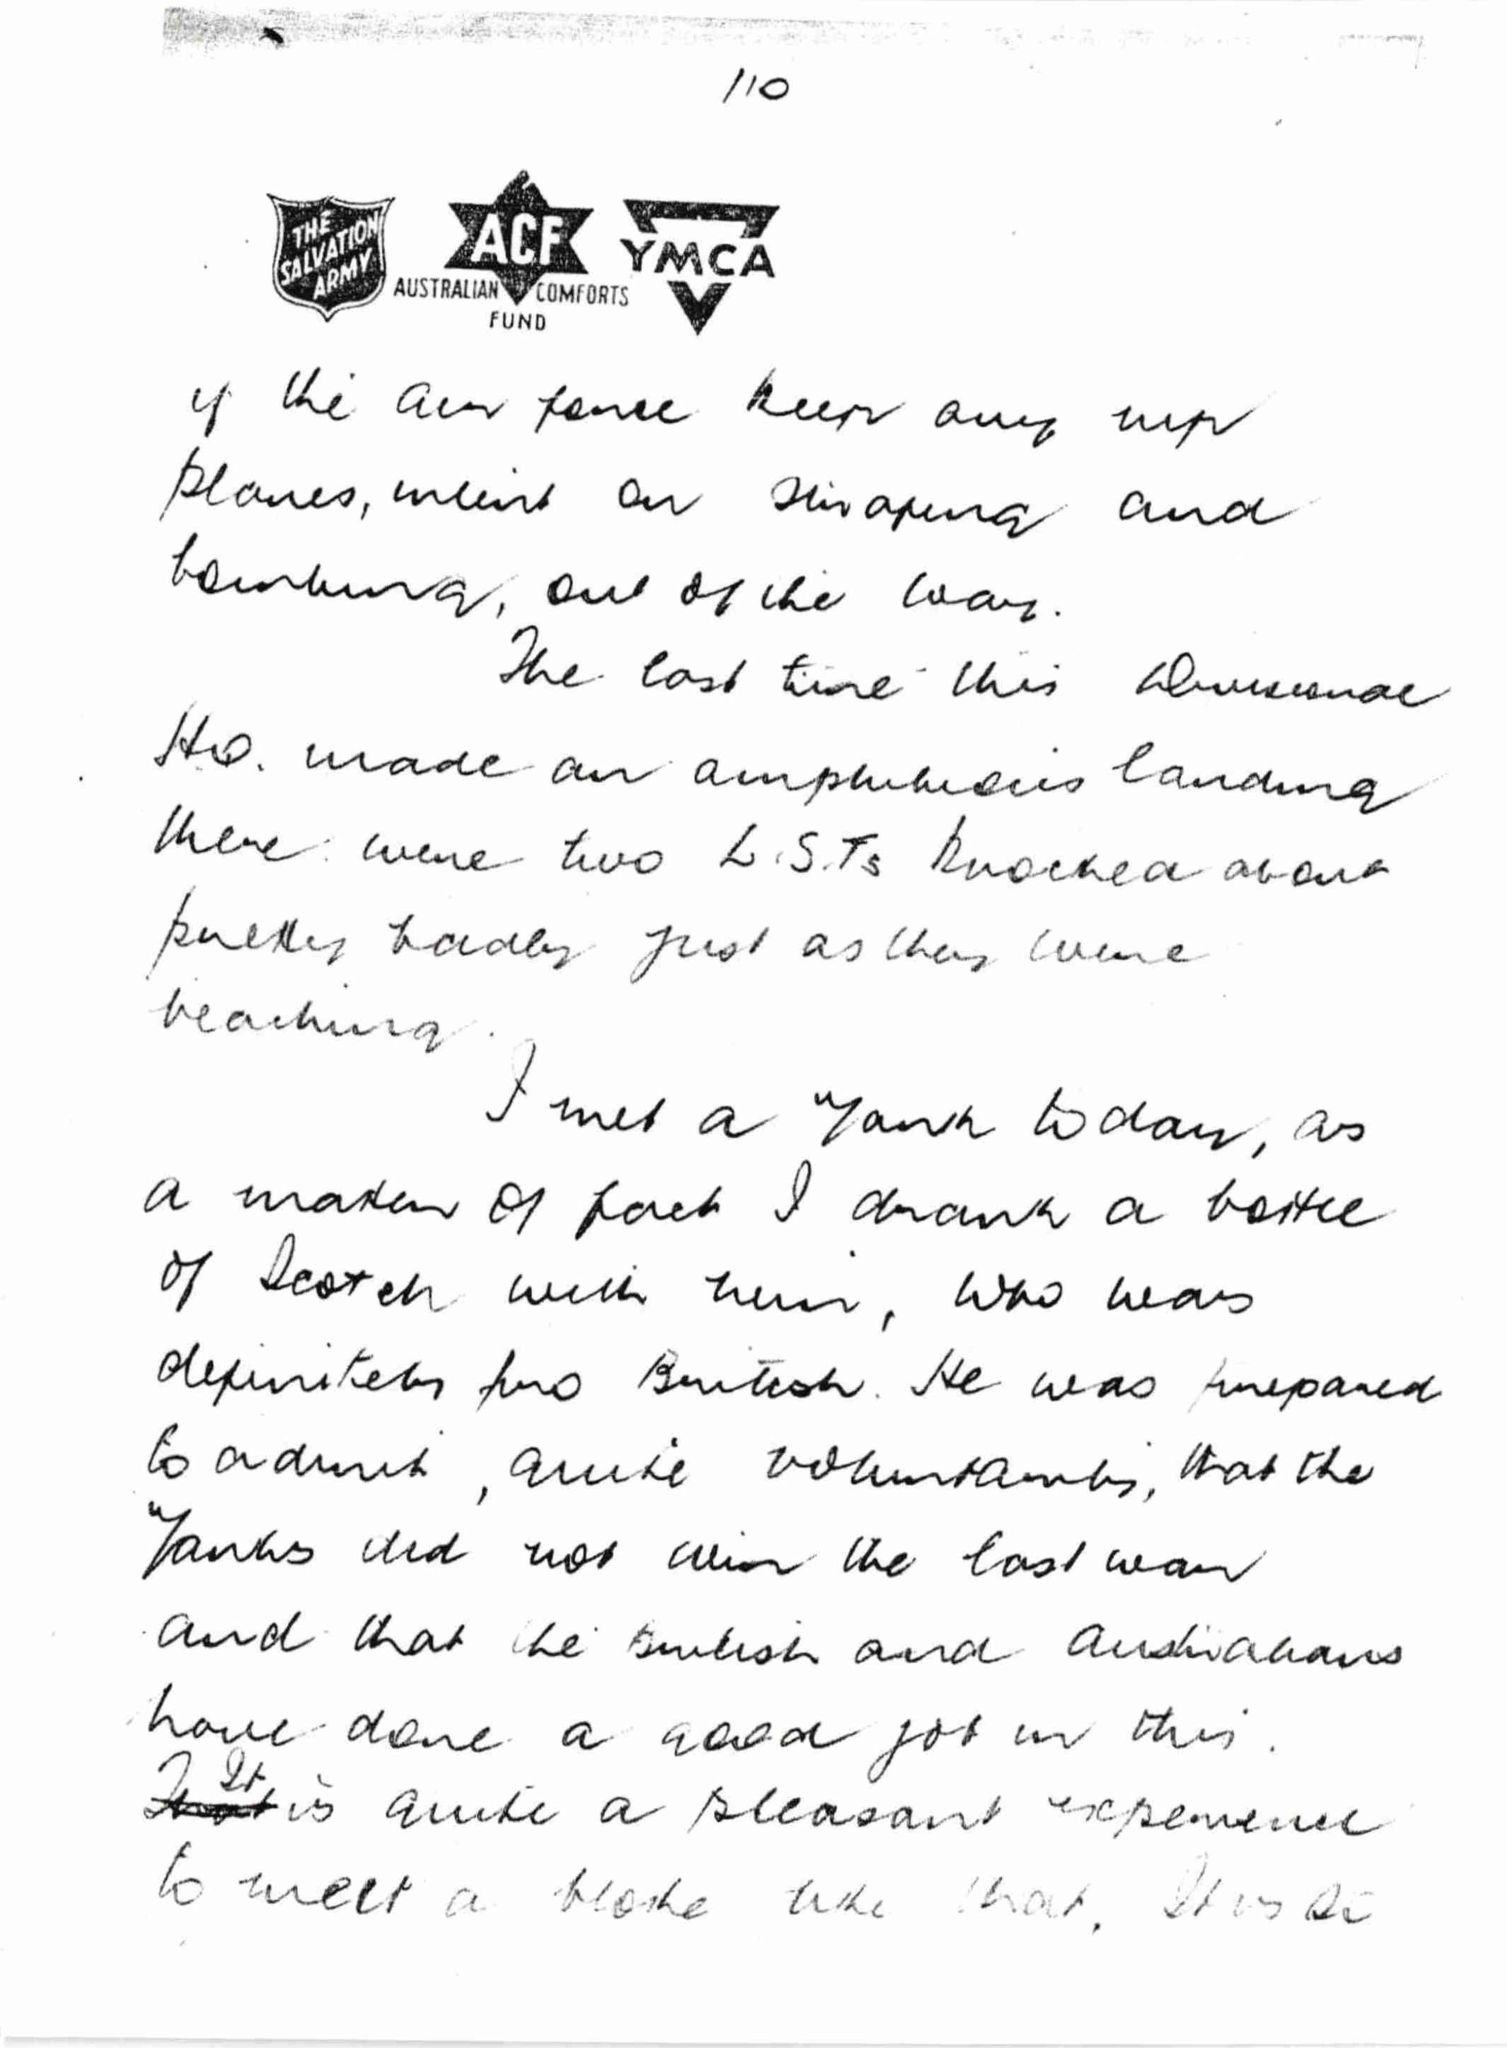 110
THE
SALVATION
ARMY
ACF
AUSTRALIAN COMFORTS
FUND
YMCA
if the air force keep any nip
planes, intent on straping and
bombing, out of the way.
The last time this Divisional
HQ. made an amphibious landing
there were two L.S.Ts knocked about
pretty badly just as they were
beaching.
I met a Yank today, as
a matter of fact I drank a bottle
of Scotch with him, who was
definitely pro British. He was prepared
to admit, quite voluntarily, that the
Yanks did not win the last war
and that the British and Australians
have done a good job in this.
It is quite a pleasant experience
to meet a bloke like that. It is so